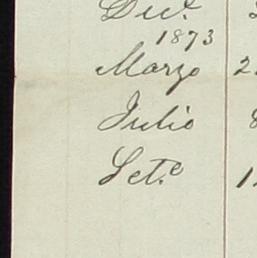 Dic.e
1873
Marzo 2
Julio 8
Set.e 1